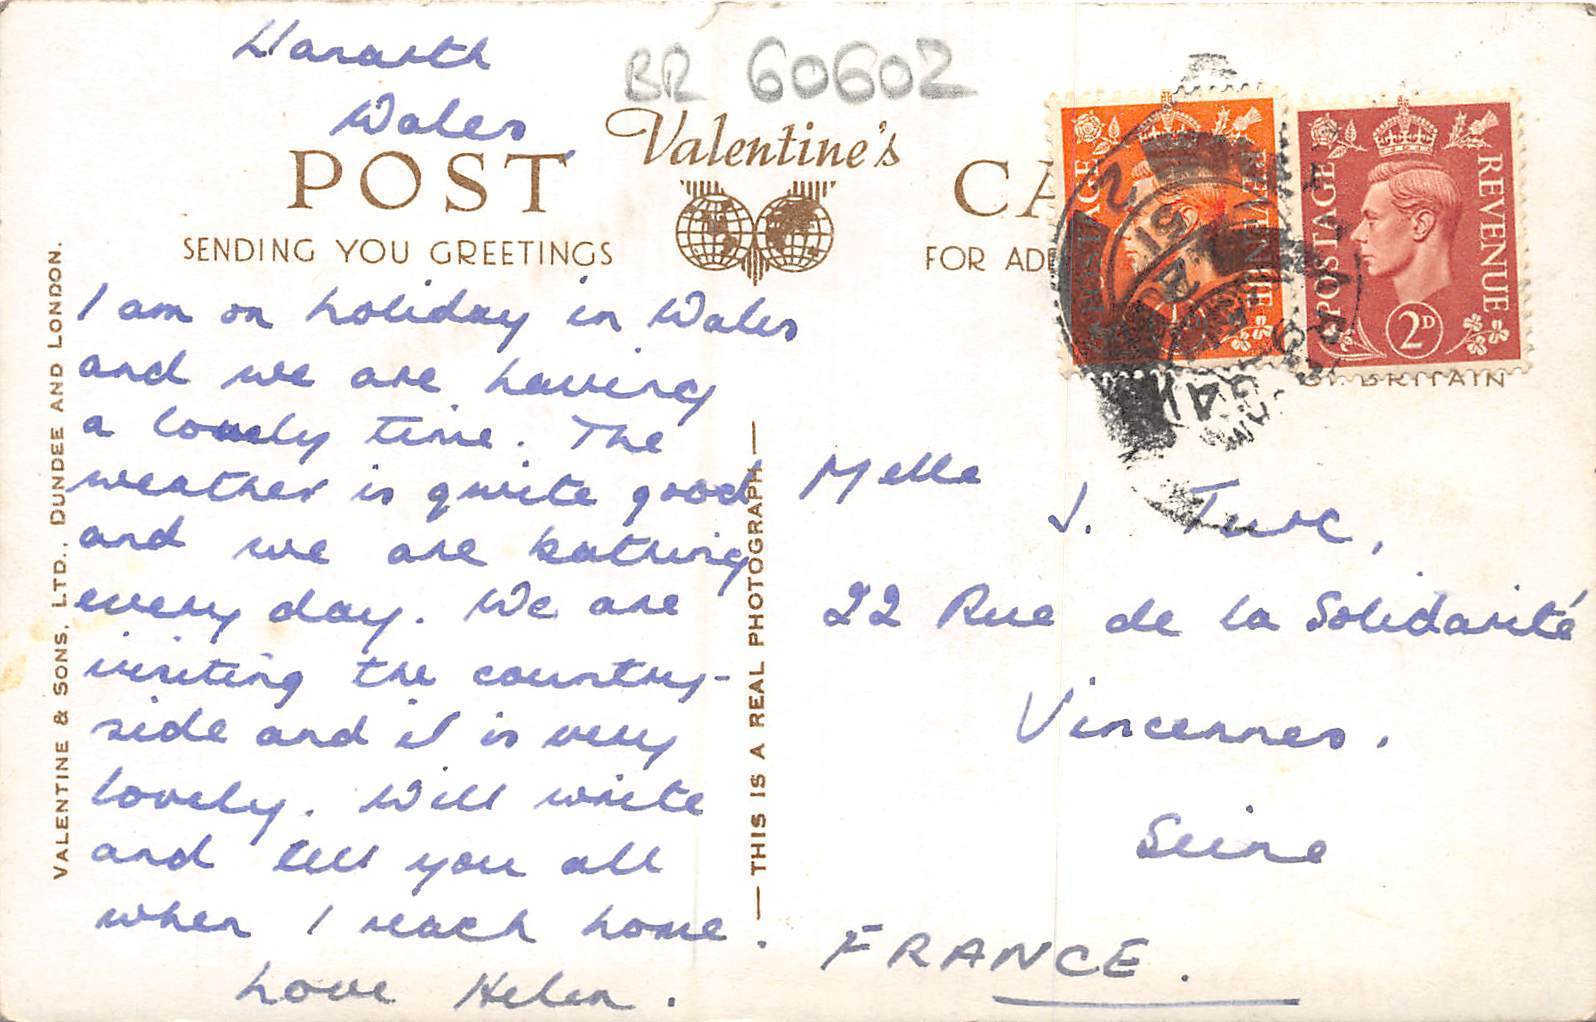 Llanarth
Wales
BR 60602
POST
Valentine's
SENDING YOU GREETINGS
FOR
POSTAGE REVENUE
2D
POSTAGE REVENUE
BRITAIN
VALENTINE & SONS, LTD., DUNDEE AND LONDON.
I am on holiday in Wales
and we are having
a lovely time. The
weather is quite good
and we are bathing
every day. We are
visiting the country-
side and it is very
lovely. Will write
and tell you all
when I reach home.
Love Helen.
—THIS IS A REAL PHOTOGRAPH—
Melle
J. Turc,
22 Rue de la Solidarité
Vincennes.
Seine
FRANCE.